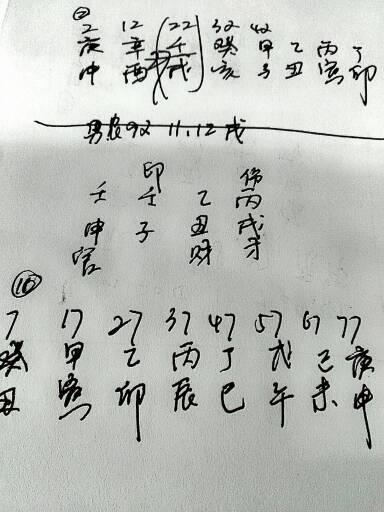 ② 2 12 22 32 42
庚 辛 壬 癸 甲 乙 丙 丁
申 酉 戌 亥 子 丑 寅 卯
男农92 11.12戌
印 伤
壬 壬 乙 丙
申 子 丑 戌
官 财 才
⑯
7 17 27 37 47 57 67 77
癸 甲 乙 丙 丁 戊 己 庚
丑 寅 卯 辰 巳 午 未 申